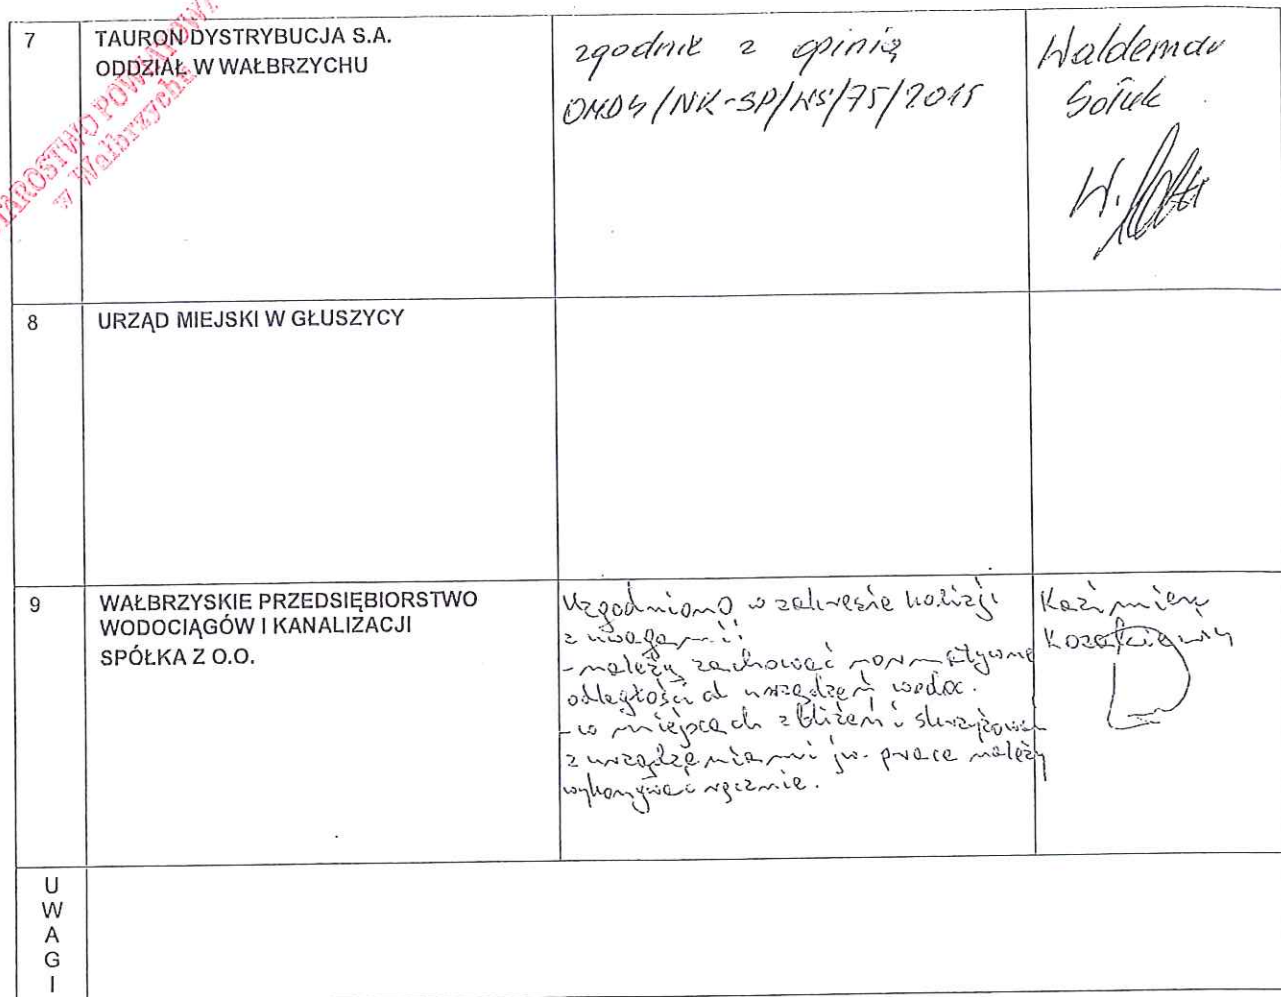 STAROSTWO POWIATOWE
w Wałbrzychu
7
TAURON DYSTRYBUCJA S.A.
ODDZIAŁ W WAŁBRZYCHU
zgodnie z opinią
OMD4/NK-SP/WS/75/2015
Waldemar
W.
8
URZĄD MIEJSKI W GŁUSZYCY
9
WAŁBRZYSKIE PRZEDSIĘBIORSTWO
WODOCIĄGÓW I KANALIZACJI
SPÓŁKA Z O.O.
Uzgodniono w zakresie kolizji
z uwagami:
- należy zachować normatywne
odległości od urządzeń wodoc.
- w miejscach zbliżeń i skrzyżowań
z urządzeniami jw. prace należy
wykonywać ręcznie.
Kazimierz
U
W
A
G
I